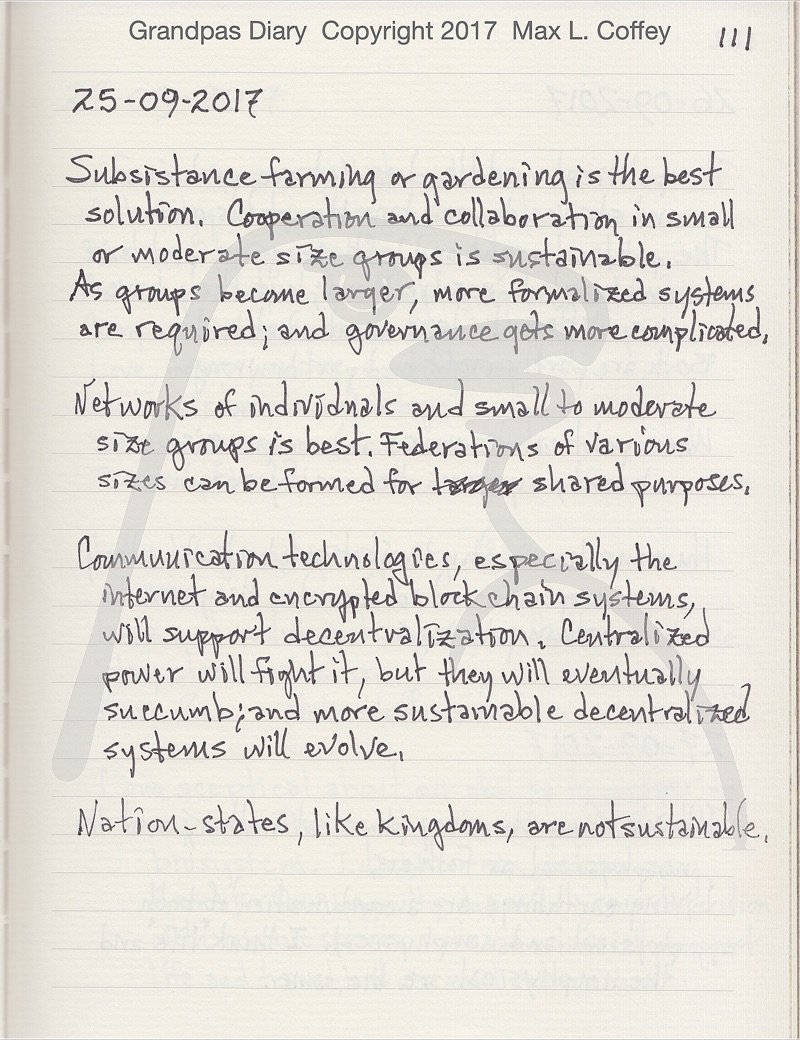 Grandpas Diary Copyright 2017 Max L. Coffey
111
25-09-2017
Subsistance farming or gardening is the best
solution. Cooperation and collaboration in small
or moderate size groups is sustainable.
As groups become larger, more formalized systems
are required; and governance gets more complicated.
Networks of individuals and small to moderate
size groups is best. Federations of various
sizes can be formed for shared purposes.
Communication technologies, especially the
internet and encrypted block chain systems,
will support decentralization. Centralized
power will fight it, but they will eventually
succumb; and more sustainable decentralized
systems will evolve.
Nation-states, like kingdoms, are not sustainable.